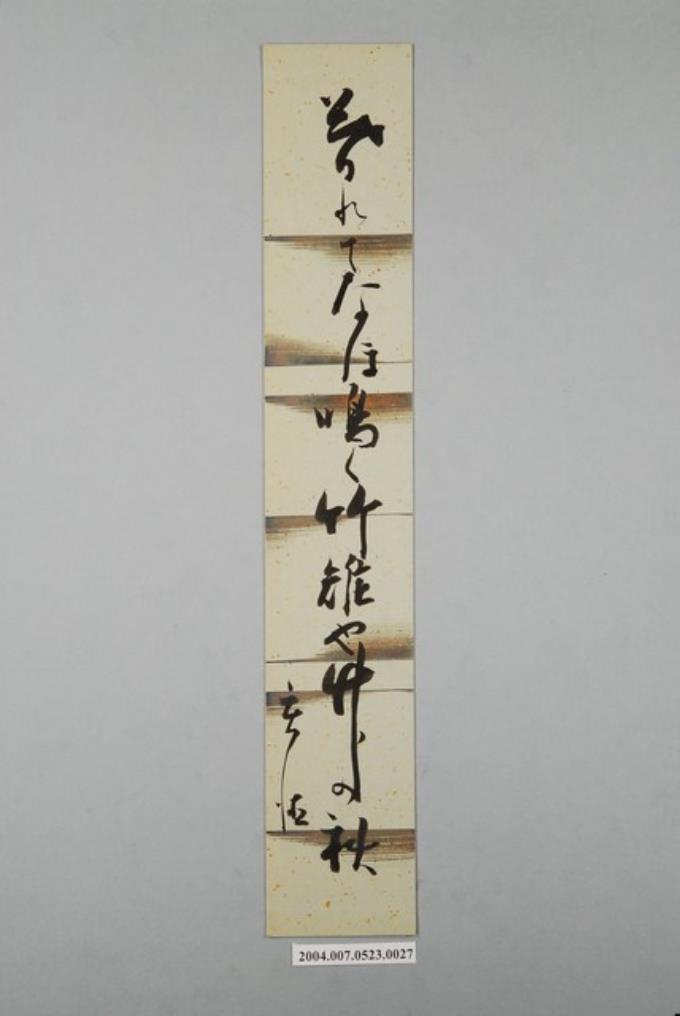 暮れてなほ鳴く竹雉や竹の秋
2004.007.0523.0027